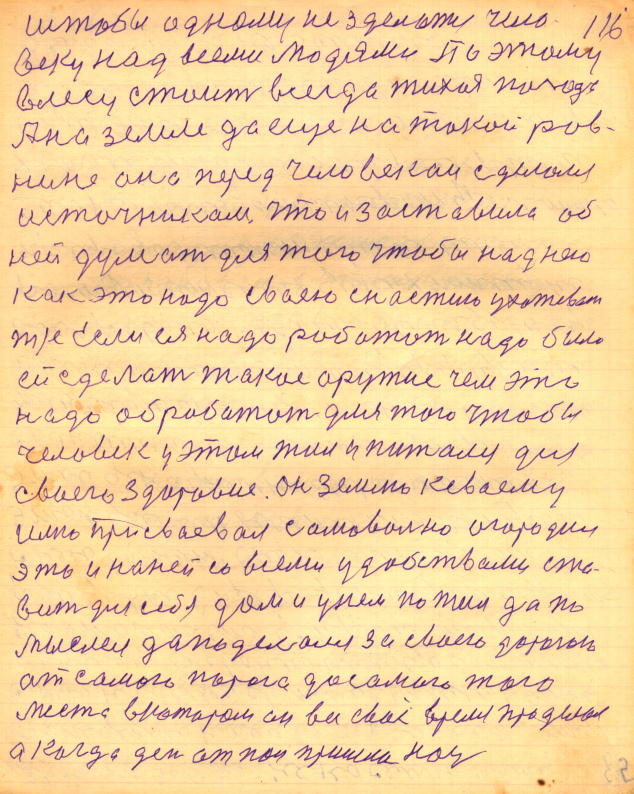 штобы одному не зделать чело- 116
веку над всеми людями Поэтому
влесу стоит всегда тихая погодь
Ана земле да еще на такой ров-
нине она перед человекам сделаля
источникам. что и заставила об
ней думат для того чтобы наднею
какэто надо своею снастию ухаживат
тже если ея надо работат надо было
ей сделат такое оружие чем это
надо обработат для того чтобы
человек у этом жил и питался для
своего здоровие. он землю ксваему
имю присваевал самоволно огородил
это и наней со всеми удобствами ста-
вит для себя дом и унем пожил да по
мыслел даподекался за своего дорогого
от самого порога досамого того
места вкотором он все свое время праделал
а когда ден отпол пришла ноч